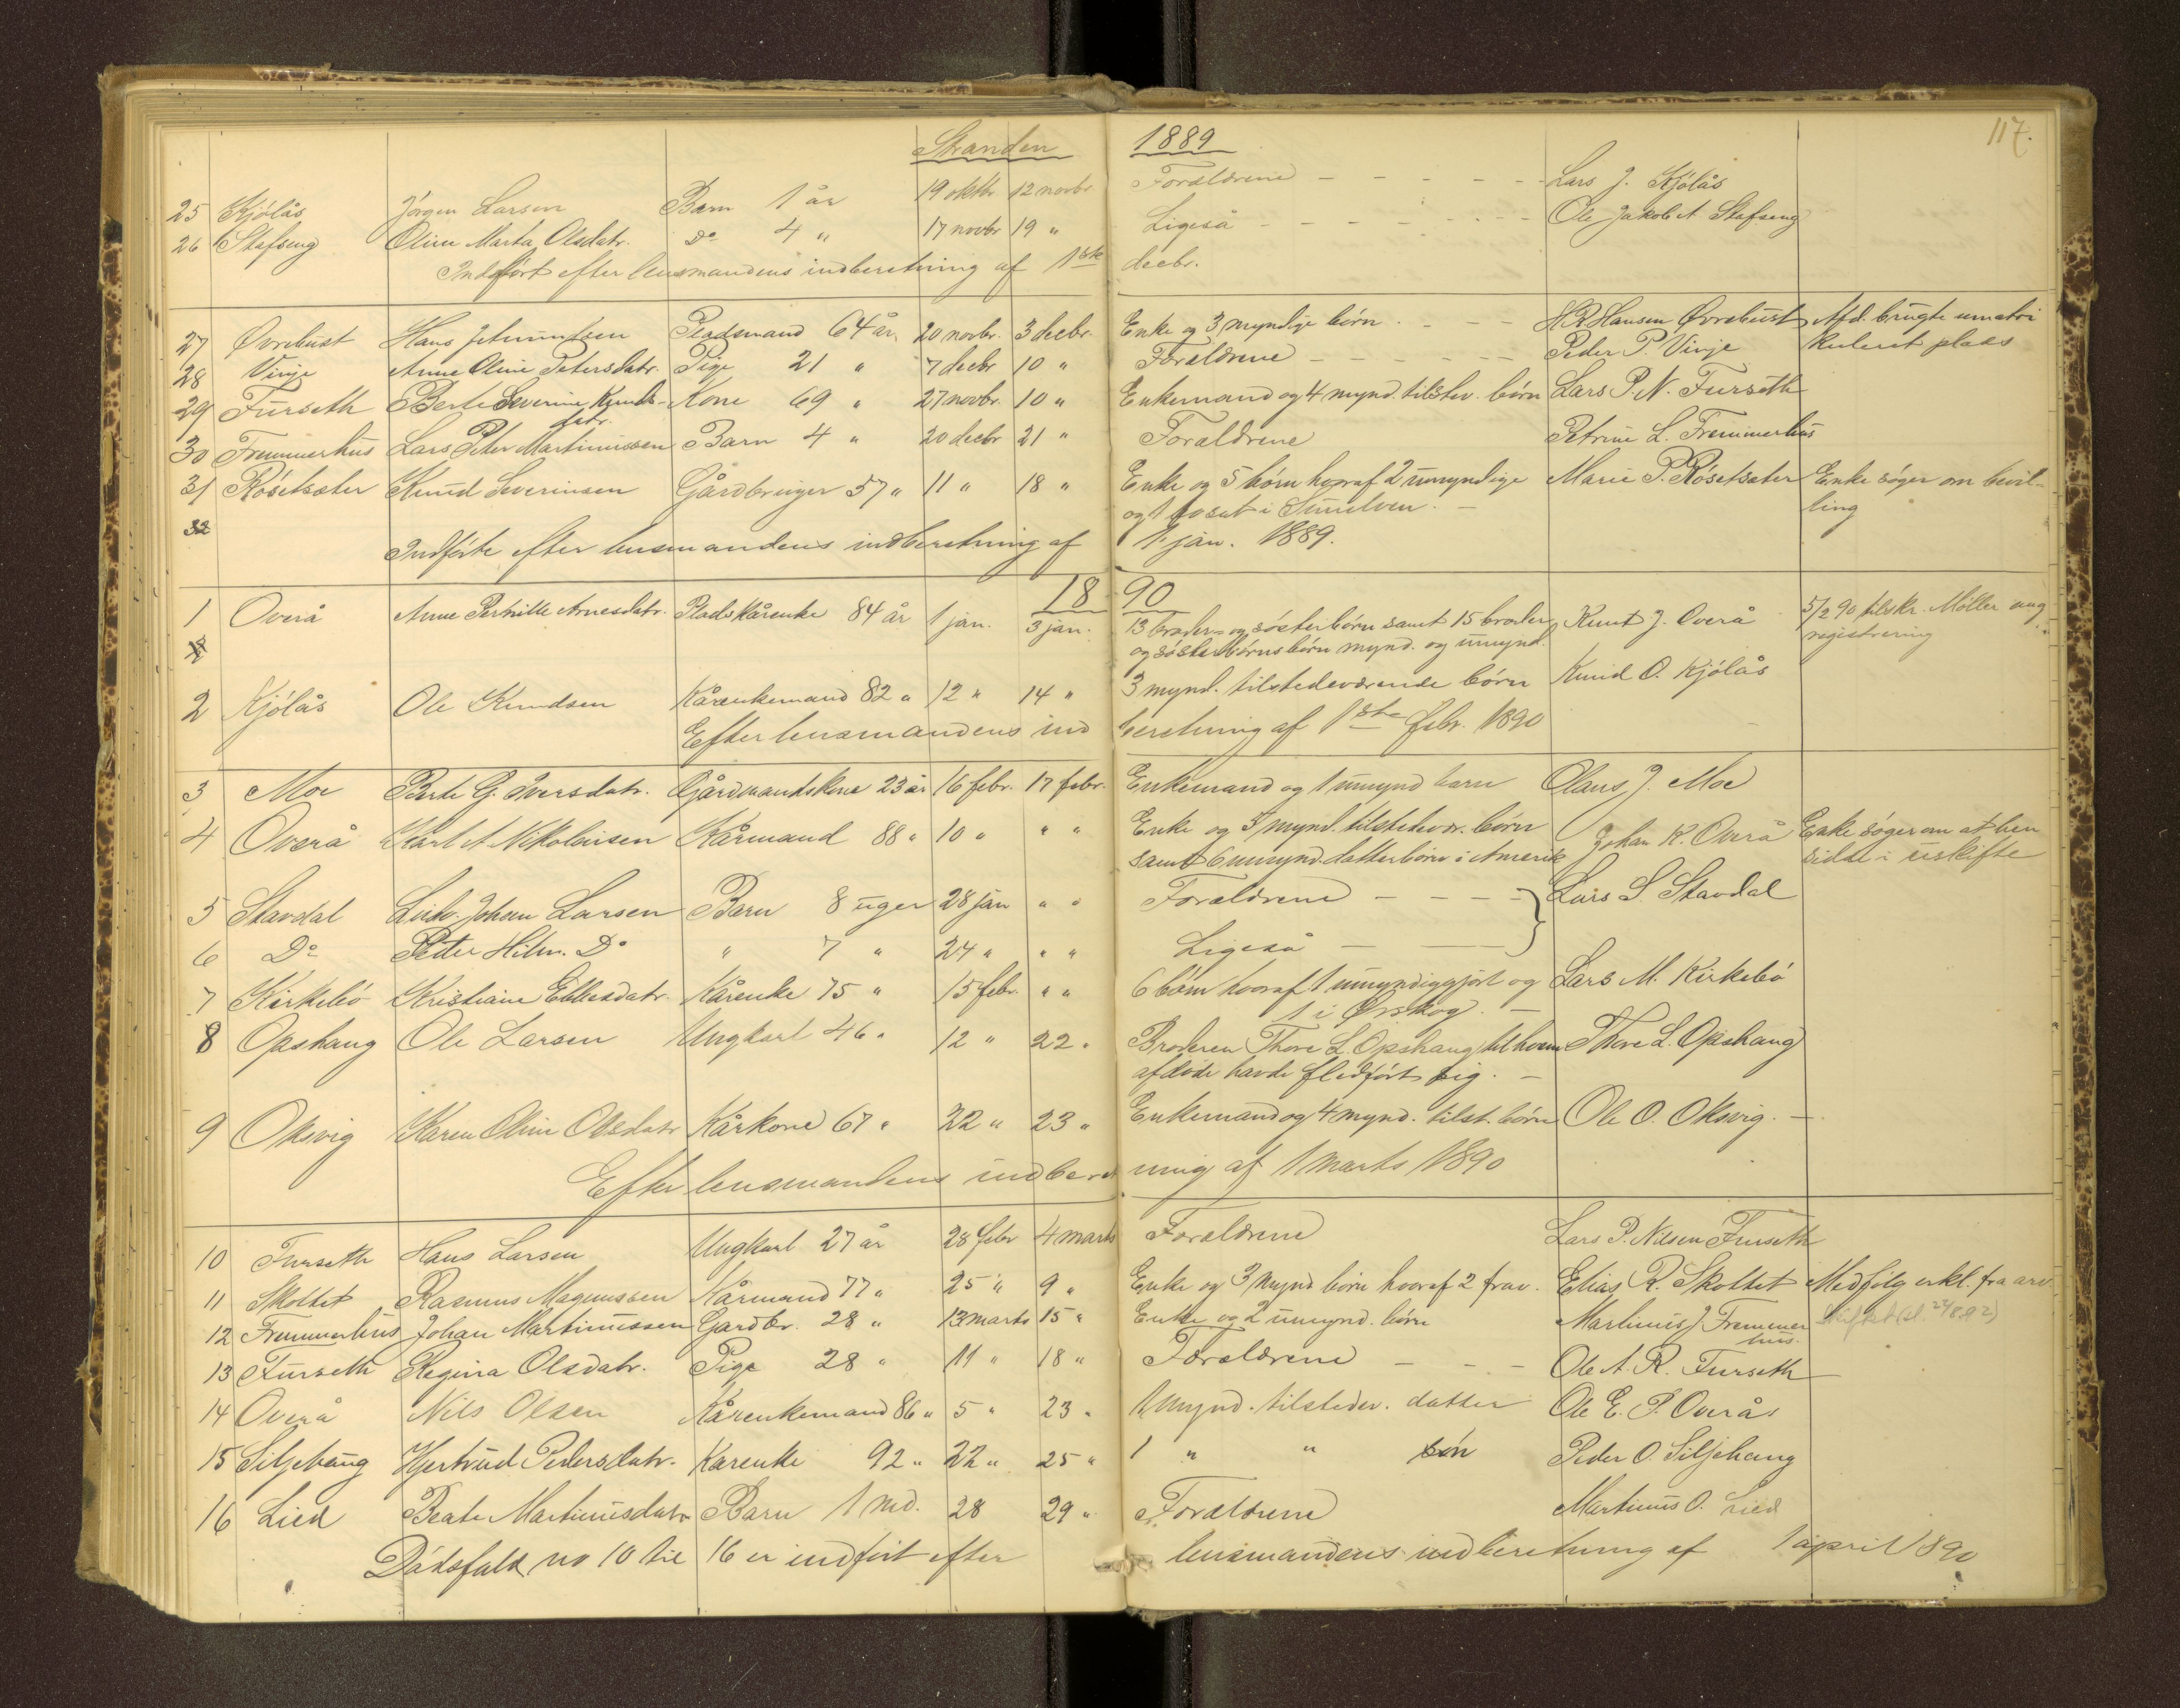 117.
Stranden 1889
25 Kjölås Jörgen Larsen Barn 1 år 19 oktbr. 12 novbr. Forældrene - - - - - Lars J. Kjölås
26 Stafseng Oline Marta Olsdatr. Do 4 " 17 novbr 19 " Ligeså - - - - - Ole Jakob A. Stafseng
Indfört efter lensmandens indberetning af 1ste decbr.
27 Øvrebust Hans Pladsmand 64 år 20 novbr. 3 decbr. Enke og 3 myndige börn. - - - H R Hansen Øvrebust Afd. brugte umatri
kuleret plads
28 Vinje Anne Oline Petersdatr. Pige 21 " 7 decbr 10 " Forældrene - - - - - Peder P. Vinje
29 Furseth Berte Severine Knuds- Kone 69 " 27 novbr. 10 " Enkemand og 4 mynd. tilstev. börn Lars P. N. Furseth
datr.
30 Fremmerhus Lars Peter Martinussen Barn 4 " 20 decbr 21 " Forældrene Petrine L. Fremmerhus
31 Rösetsæter Knud Severinsen Gårdbruger 57 " 11 " 18 " Enke og 5 börn hvoraf 2 umyndige Marie P. Rösetsæter Enke söger om bevil-
og 1 bosat i Sunelven. - ling
32
Indförte efter lensmandens indberetning af 1 jan. 1889.
1890
1 Overå Anne Pernille Arnesdatr. Pladskårenke 84 år 1 jan. 3 jan. 13 broder- og sösterbörn samt 15 broder Knut J. Overå 5/2 90 tilskr. Möller ang.
og sösterbörnsbörn mynd. og umynd. registrering
2 Kjölås Ole Knudsen Kårenkemand 82 " 12 " 14 " 3 mynd. tilstedeværende börn Knud O. Kjölås
Efter lensmandens indberetning af 1ste febr. 1890
3 Moe Berte G. Iversdatr. Gårdmandskone 23 år 16 febr. 17 febr. Enkemand og 1 umynd barn Claus J. Moe
4 Overå Karl A. Nikolaisen Kårmand 88 " 10 " " " Enke og 3 mynd. tilstedevær. börn Johan K. Overå Enke söger om at hen
samt 6 umynd. datterbörn i Amerik sidde i uskifte
5 Stavdal Johan Larsen Barn 8 uger 28 jan " " Forældrene - - - - Lars S. Stavdal
6 Do Petter Hilm. Do " 7 " 24 " " " Ligeså - -
7 Kirkebö Kristiane Ellesdatr. Kårenke 75 " 15 febr. " " 6 börn hvoraf 1 umyndiggjort og Lars M. Kirkebö
1 i Ørskog. -
8 Opshaug Ole Larsen Ungkarl 46 " 12 " 22 " Broderen Thore L. Opshaug, til hvem Thore L. Opshaug
afdöde havde fledfört sig. -
9 Oksvig Karen Oline Olsdatr Kårkone 67 " 22 " 23 " Enkemand og 4 mynd. tilst. börn Ole O. Oksvig. -
Efter lensmandens indberetning af 1 marts 1890
10 Furseth Hans Larsen Ungkarl 27 år 28 febr 4 marts Forældrene Lars P. Nilsen Furseth
11 Skottet Rasmus Magnussen Kårmand 77 " 25 " 9 " Enke og 3 mynd börn hvoraf 2 frav. Elias R. Skottet Medfölg erkl. fra arv
12 Fremmerhus Johan Martinussen Gårdbr. 28 " 13 marts 15 " Enke og 2 umynd. börn Martinus J Fremmer
hus.
13 Furseth Regina Olsdatr. Pige 28 " 11 " 18 " Forældrene - - - Ole A. R. Furseth
14 Overå Nils Olsen Kårenkemand 86 " 5 " 23 " 1 mynd. tilstedev. datter Ole E. P. Overås
15 Siljehaug Hjertrud Pedersdatr. Kårenke 92 " 22 " 25 " 1 " " sön Peder O. Siljehaug
16 Lied Beate Martinusdatr Barn 1 md. 28 29 " Forældrene Martinus O. Lied
Dödsfald no 10 til 16 er indfört efter lensmandens indberetning af 1 april 1890